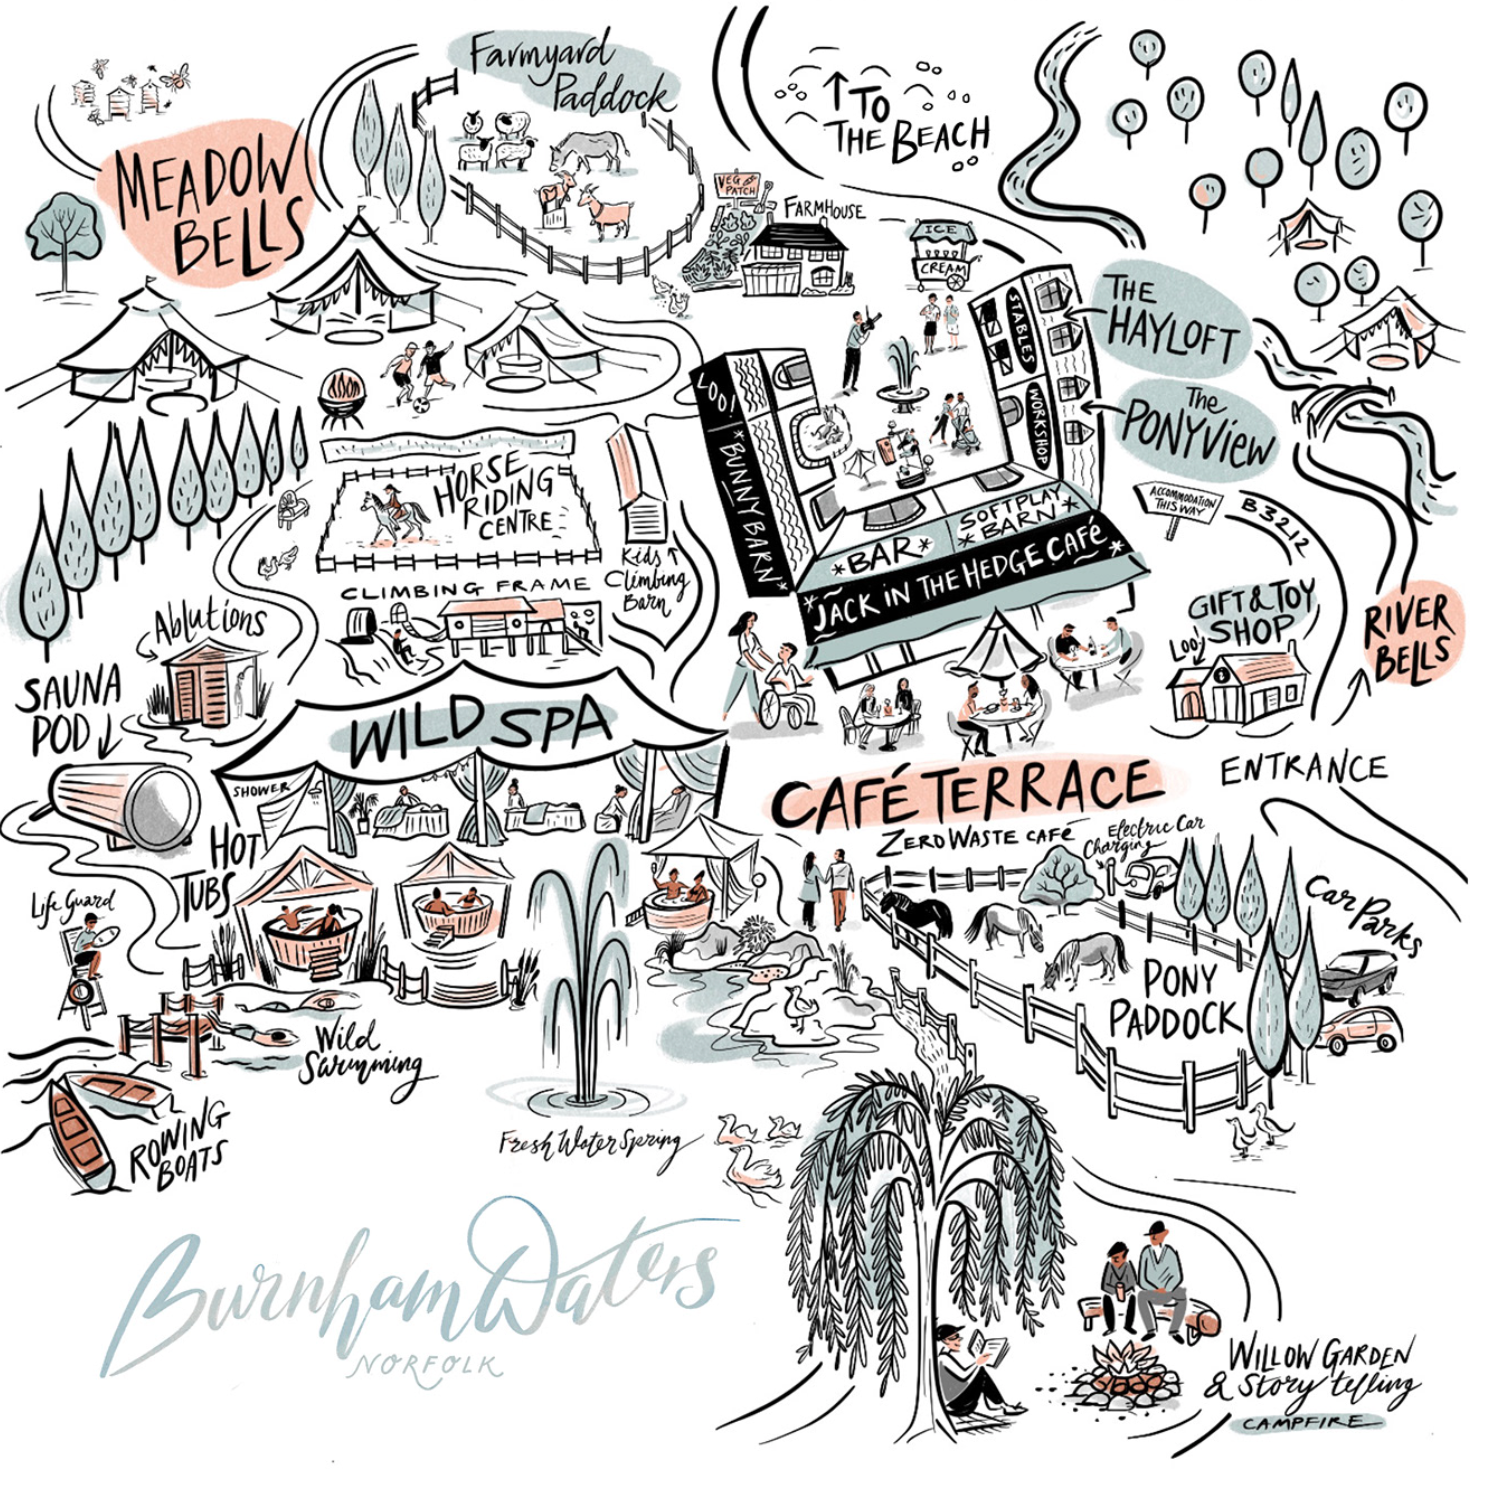 Farmyard
Paddock
↑ TO
THE BEACH
MEADOW
BELLS
VEG
PATCH
FARMHOUSE
ICE
CREAM
THE
HAYLOFT
The
PONYVIEW
STABLES
WORKSHOP
LOO!
*BUNNY BARN*
*BAR*
SOFTPLAY
*BARN*
*JACK IN THE HEDGE CAFé*
ACCOMMODATION
THIS WAY
B3212
HORSE
RIDING
CENTRE
Kids
Climbing
Barn
CLIMBING FRAME
GIFT & TOY
SHOP
LOO
i
RIVER
BELLS
Ablutions
SAUNA
POD
WILD SPA
SHOWER
CAFÉ TERRACE
ZERO WASTE CAFé
ENTRANCE
Electric Car
Charging
HOT
TUBS
Life Guard
Car Parks
PONY
PADDOCK
Wild
Swimming
ROWING
BOATS
Fresh Water Spring
Burnham Waters
NORFOLK
WILLOW GARDEN
& Story telling
CAMPFIRE